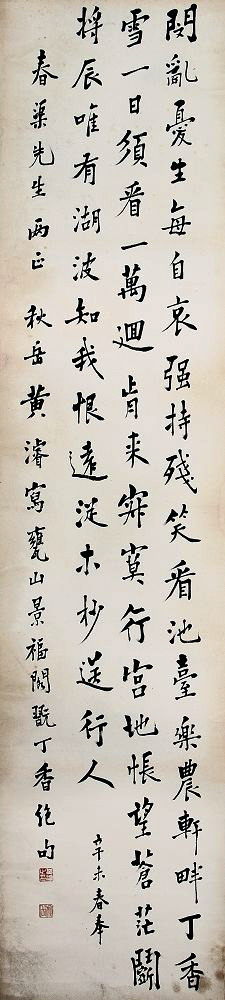 閔亂憂生每自哀强持殘笑看池臺樂農軒畔丁香
雪一日須看一萬迴肯来寂寞行宫地悵望蒼茫鬭
將辰唯有湖波知我恨遠從木杪送行人 辛未春奉
春渠先生两正 秋岳黄濬寫甕山景福閣翫丁香絶句